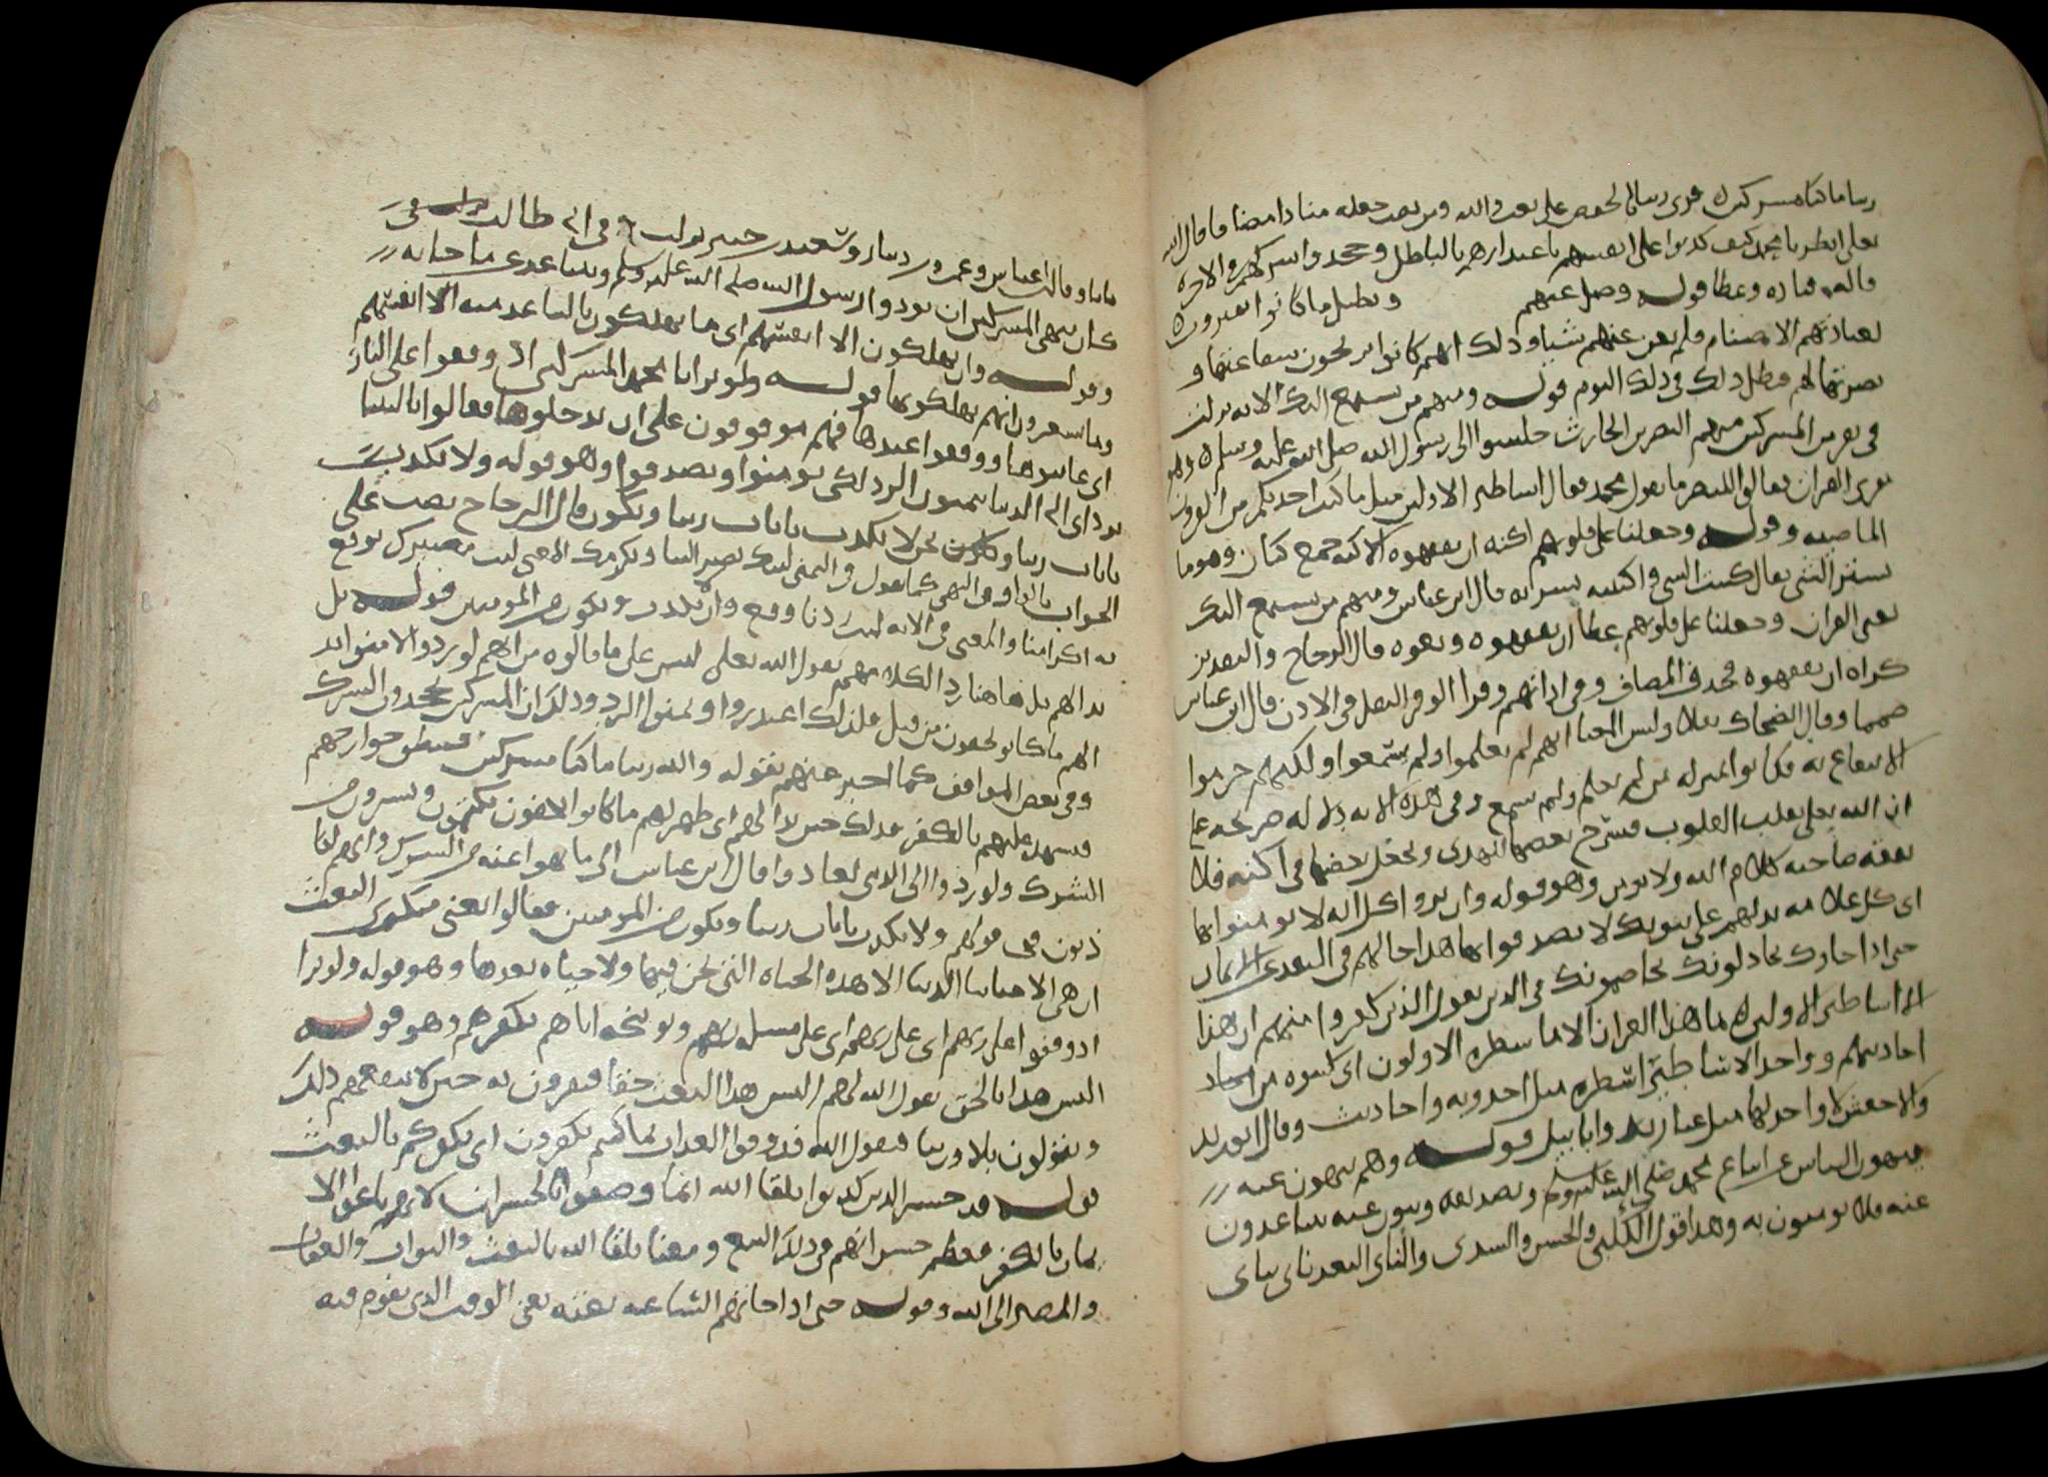 ربنا ما كنا مشركين قرى ربنا بالخفض على نعت والله ومن نصب جعله منادا مضافا قال الله
تعلى انظر يا محمد كيف كذبوا على انفسهم باعتذارهم بالباطل وجحدوا شركهم والاخره
قاله قتاده وعطا قوله وضل عنهم وبطل ما كانوا يفترون
بعبادتهم الاصنام فلم يغن عنهم شيا وذلك انهم كانوا يرجون شفاعتها و
نصرتها لهم فبطل ذلك في ذلك اليوم قوله ومنهم من يستمع اليك الايه نزلت
في نفر من المشركين منهم النضر بن الحارث جلسوا الى رسول الله صلى الله عليه وسلم وهو
يقرى القران فقالوا للنضر ما يقول محمد فقال اساطير الاولين مثل ما كنت احدثكم من القرون
الماضيه وقوله وجعلنا على قلوبهم اكنه ان يفقهوه الاكنه جمع كنان وهو ما
ستر الشي يقال كننت الشي واكننته ستراته قال ابن عباس ومنهم من يستمع اليك
يعني القران وجعلنا على قلوبهم غطا ان يفقهوه ويعوه قال الزجاج والتقدير
كراه ان يفقهوه فحذف المضاف وفي اذانهم وقرا الوقر الثقل في الاذن قال ابن عباس
صمما وقال الضحاك ثقلا وليس المعنا انهم لم يعلموا ولم يسمعوا ولكنهم حرموا
الانتفاع به فكانوا بمنزله من لم يعلم ولم يسمع وفي هذه الايه دلاله صريحه على
ان الله تعلى يقلب القلوب فيشرح بعضها للهدى ويجعل بعضها في اكنه فلا
يفقه صاحبه كلام الله ولا يومن وهو قوله وان يروا كل ايه لا يومنوا بها
اى كل علامه تدلهم على نبوتك لا يصدقوا بها هذا حالهم في البعد عن الايمان
حتى اذا جاوك يجادلونك يخاصمونك في الدين يقول الذين كفروا منهم ان هذا
الا اساطير الاولين ما هذا القران الا ما سطره الاولون اى كتبوه من
احاديثهم وواحد الاساطير اسطره مثل احدوثه واحاديث وقال ابو زيد
والاخفش لا واحد لها مثل عباديد وابابيل قوله وهم ينهون عنه
ينهون الناس عن اتباع محمد صلى الله عليه وسلم وتصديقه وينون عنه يتباعدون
عنه فلا يومنون به وهذا قول الكلبي والحسن والسدى والناى البعد ناى يناى
نايا وقال ابن عباس وعمرو بن دينار وسعيد بن جبير نزلت في ابي طالب
كان ينهى المشركين ان يوذوا رسول الله صلى الله عليه وسلم ويتباعد عن ما جا به
وقوله وان يهلكون الا انفسهم اى ما يهلكون بالتباعد منه الا انفسهم
وما يشعرون انهم يهلكونها قوله ولو ترا يا محمد المشركين اذ وقفوا على النار
اى عاينوها ووقفوا عندها فهم موقوفون على ان يدخلوها فقالوا يا ليتنا
نرد اى الى الدنيا تمنوا الرد لكي يومنوا ويصدقوا وهو قوله ولا نكذب
بايات ربنا ونكون نحن لا نكذب بايات ربنا ونكون قال الزجاج نصب على
الجواب بالواو في التمنى كما تقول في التمنى ليتك تصير الينا ونكرمك المعنى ليت مصيرك يوقع
به اكرامنا والمعنى في الايه ليت ردنا وقع وان لا نكذب ونكون من المومنين قوله بل
بدا لهم بل هاهنا رد لكلامهم يقول الله تعلى ليس على ما قالوه من انهم لو ردوا لامنوا بد
لهم ما كانوا يخفون من قبل فلذلك اعتذروا وتمنوا الرد وذلك ان المشركين يجحدون الشرك
وفي بعض المواقف كما اخبر عنهم بقوله والله ربنا ما كنا مشركين فينطق جوارحهم
فيشهد عليهم بالكفر فذلك حين بدا لهم اى ظهر لهم ما كانوا يخفون يكتمون ويسرون من
الشرك ولو ردوا الى الدنى لعادوا قال ابن عباس الى ما نهوا عنه من الشرك وانهم لكا
ذبون في قولهم ولا نكذب بايات ربنا ونكون من المومنين فقالوا يعني منكرى البعث
ان هي الا حياتنا الدنيا الا هذه الحياه التي نحن فيها ولا حياه بعدها وهو قوله ولو ترا
اذ وقفوا على ربهم اى على ربهم اى على مسله ربهم وتوبيخه اياهم بكفرهم وهو قوله
اليس هذا بالحق يقول الله لهم اليس هذا البعث حقا فيقرون به حين لا ينفعهم ذلك
ويقولون بلا وربنا فيقول الله فذوقوا العذاب بما كنتم تكفرون اى بكفركم بالبعث
قوله قد خسر الذين كذبوا بلقا الله انما وصفوا بالخسران لانهم باعوا الا
يمان بالكفر فعظم خسرانهم في ذلك البيع ومعنا بلقا الله بالبعث والثواب والعقاب
والمصير الى الله وقوله حتى اذا جاتهم الساعه بغته يعني الوقت الذى يقوم فيه